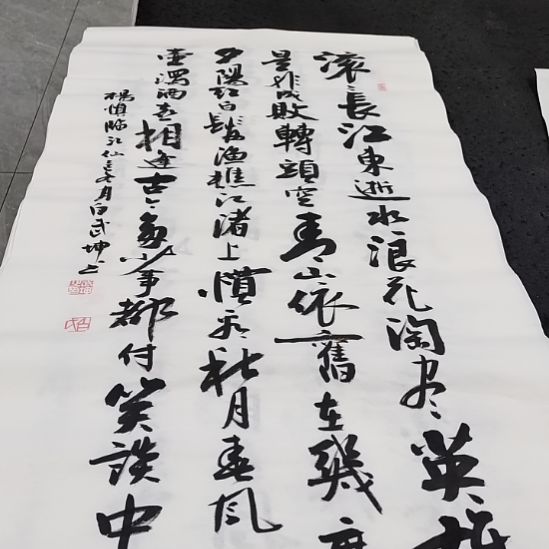 滚滚長江東逝水浪花淘尽英雄
是非成敗轉頭空青山依舊在幾度
夕陽红白髮渔樵江渚上慣看秋月春風
壶濁酒喜相逢古今多少事都付笑談中
楊慎臨江仙月白武坤书